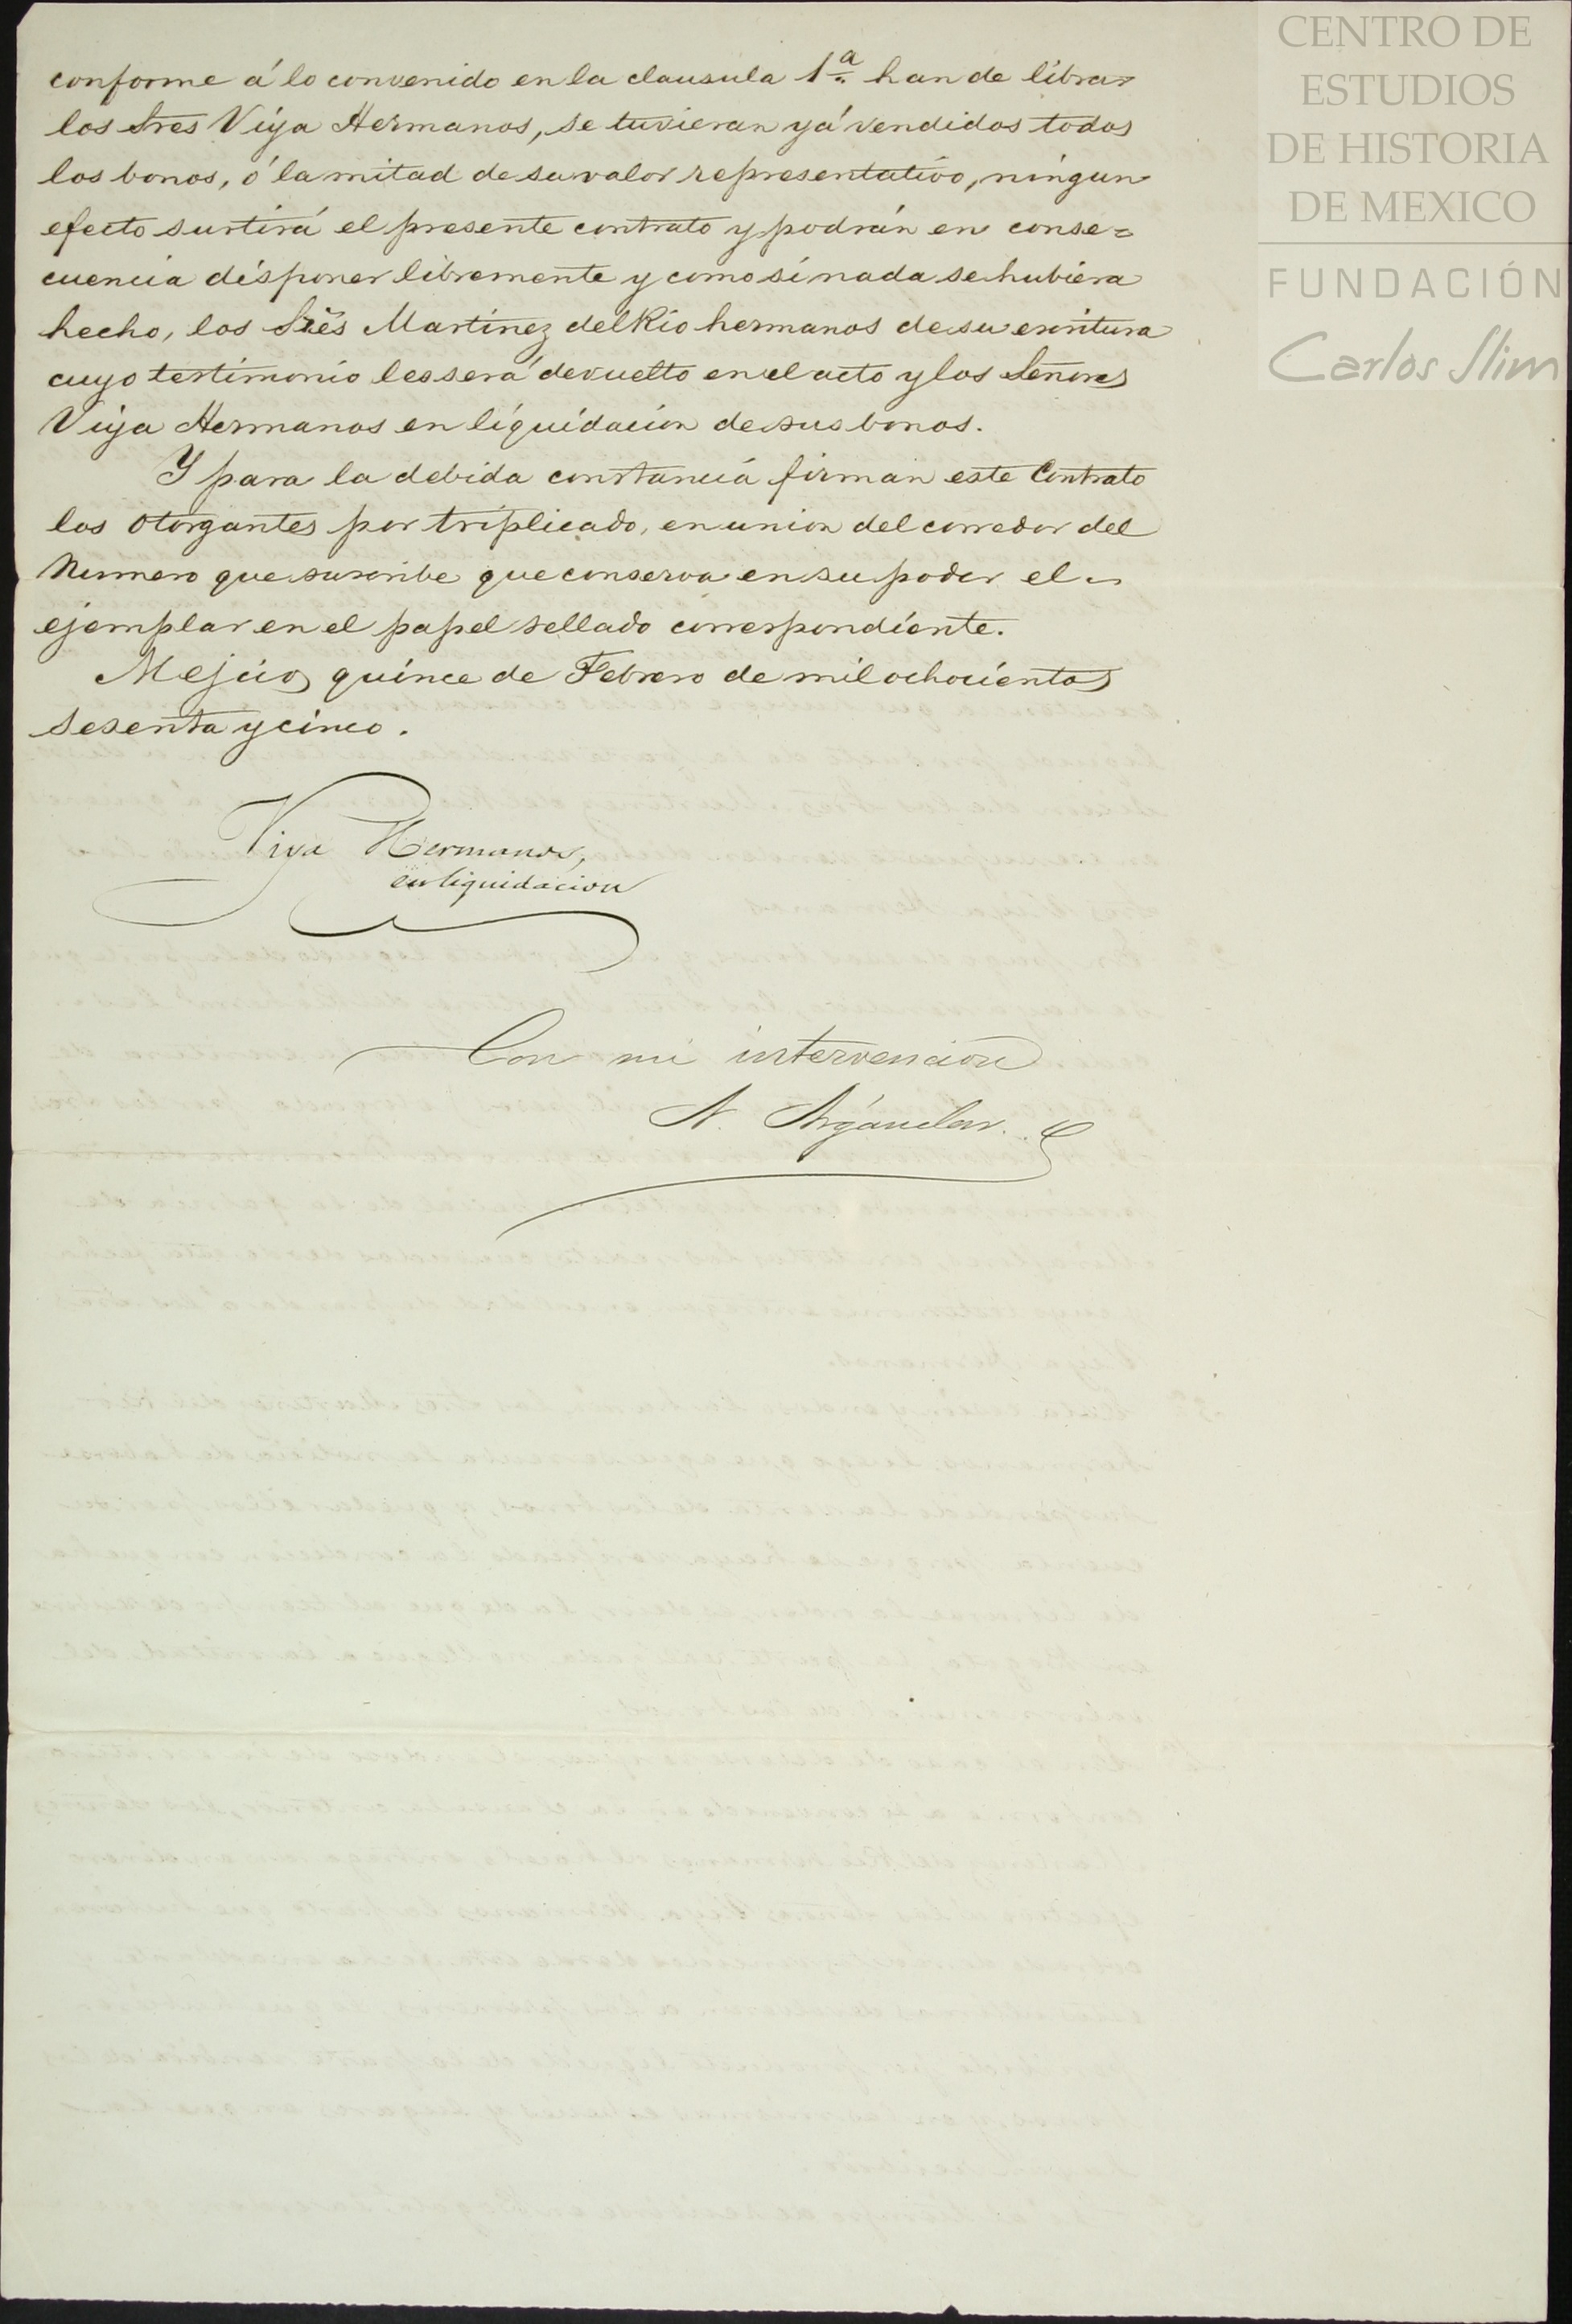 CENTRO DE
ESTUDIOS
DE HISTORIA
DE MEXICO
FUNDACIÓN
Carlos Slim
conforme á lo convenido en la clausula 1ª han de librar
los Sres Viya Hermanos, se tuvieran yá vendidos todos
los bonos, ó la mitad de su valor representativo, ningun
efecto surtirá el presente contrato y podrán en conse=
cuencia disponer libremente y como si nada se hubiera
hecho, los Srēs Martinez del Rio hermanos de su escritura
cuyo testimonio les será devuelto en el acto y los Señores
Viya Hermanos en liquidacion de sus bonos.
Y para la debida constancia firman este Contrato
los otorgantes por triplicado, en union del corredor del
Numero que suscribe que conserva en su poder el
ejemplar en el papel sellado correspondiente.
Mejico quince de Febrero de mil ochocientos
sesenta y cinco.
Viya Hermanos,
en liquidacion
Con mi intervencion
A.